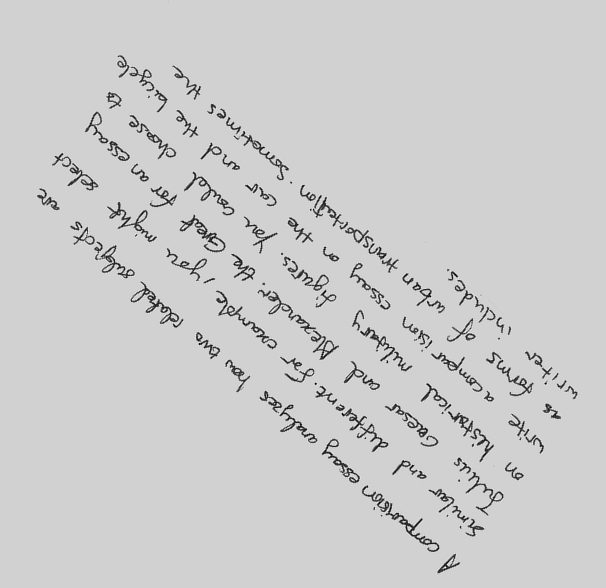 A comparision essay analyzes how two related subjects are
similar and different. For example, you might select
Julius Caesar and Alexander the Great for an essay
on historical military figures. You could choose to
write a comparision essay on the car and the bicycle
as forms of urban transportation. Sometimes the
writer includes.